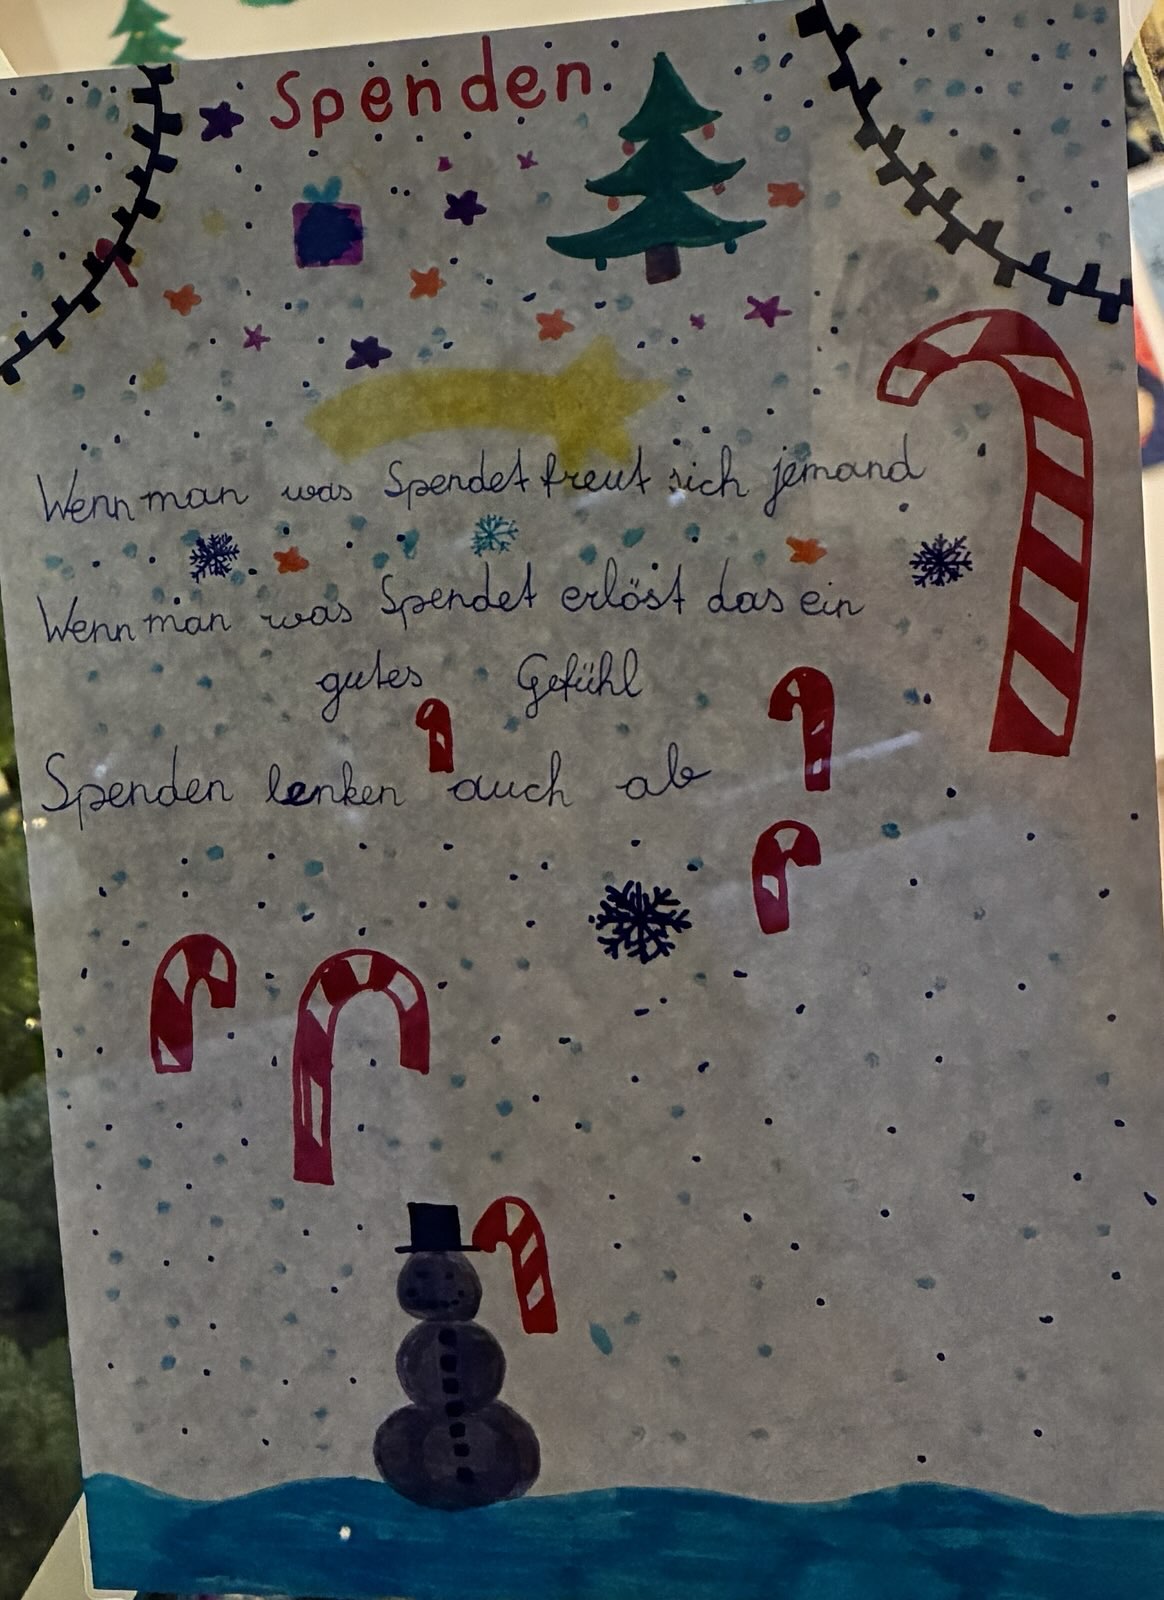 Spenden
Wenn man was Spendet freut sich jemand
Wenn man was Spendet erlöst das ein
gutes Gefühl
Spenden lenken auch ab